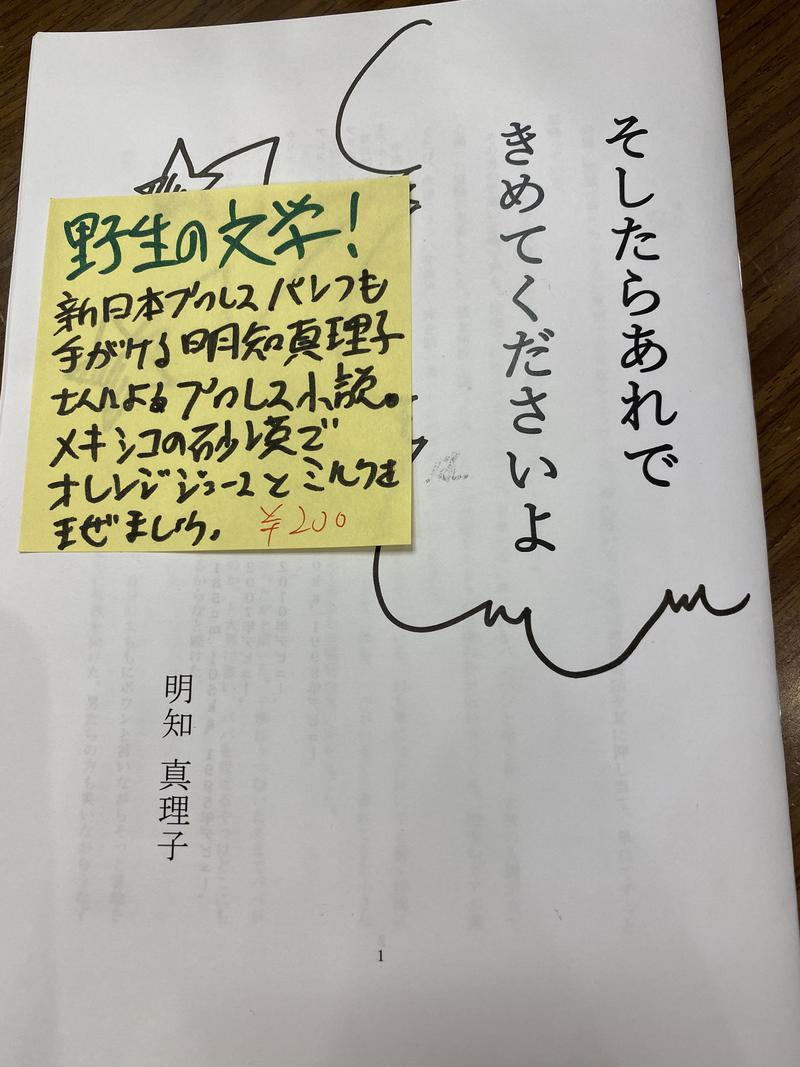 そしたらあれで
きめてくださいよ
野生の文学!
新日本プロレス パンフも
手がける明知真理子
さんによるプロレス小説。
メキシコの砂漠で
オレンジジュースとミルクを
まぜましょう。 ¥200
明知 真理子
1